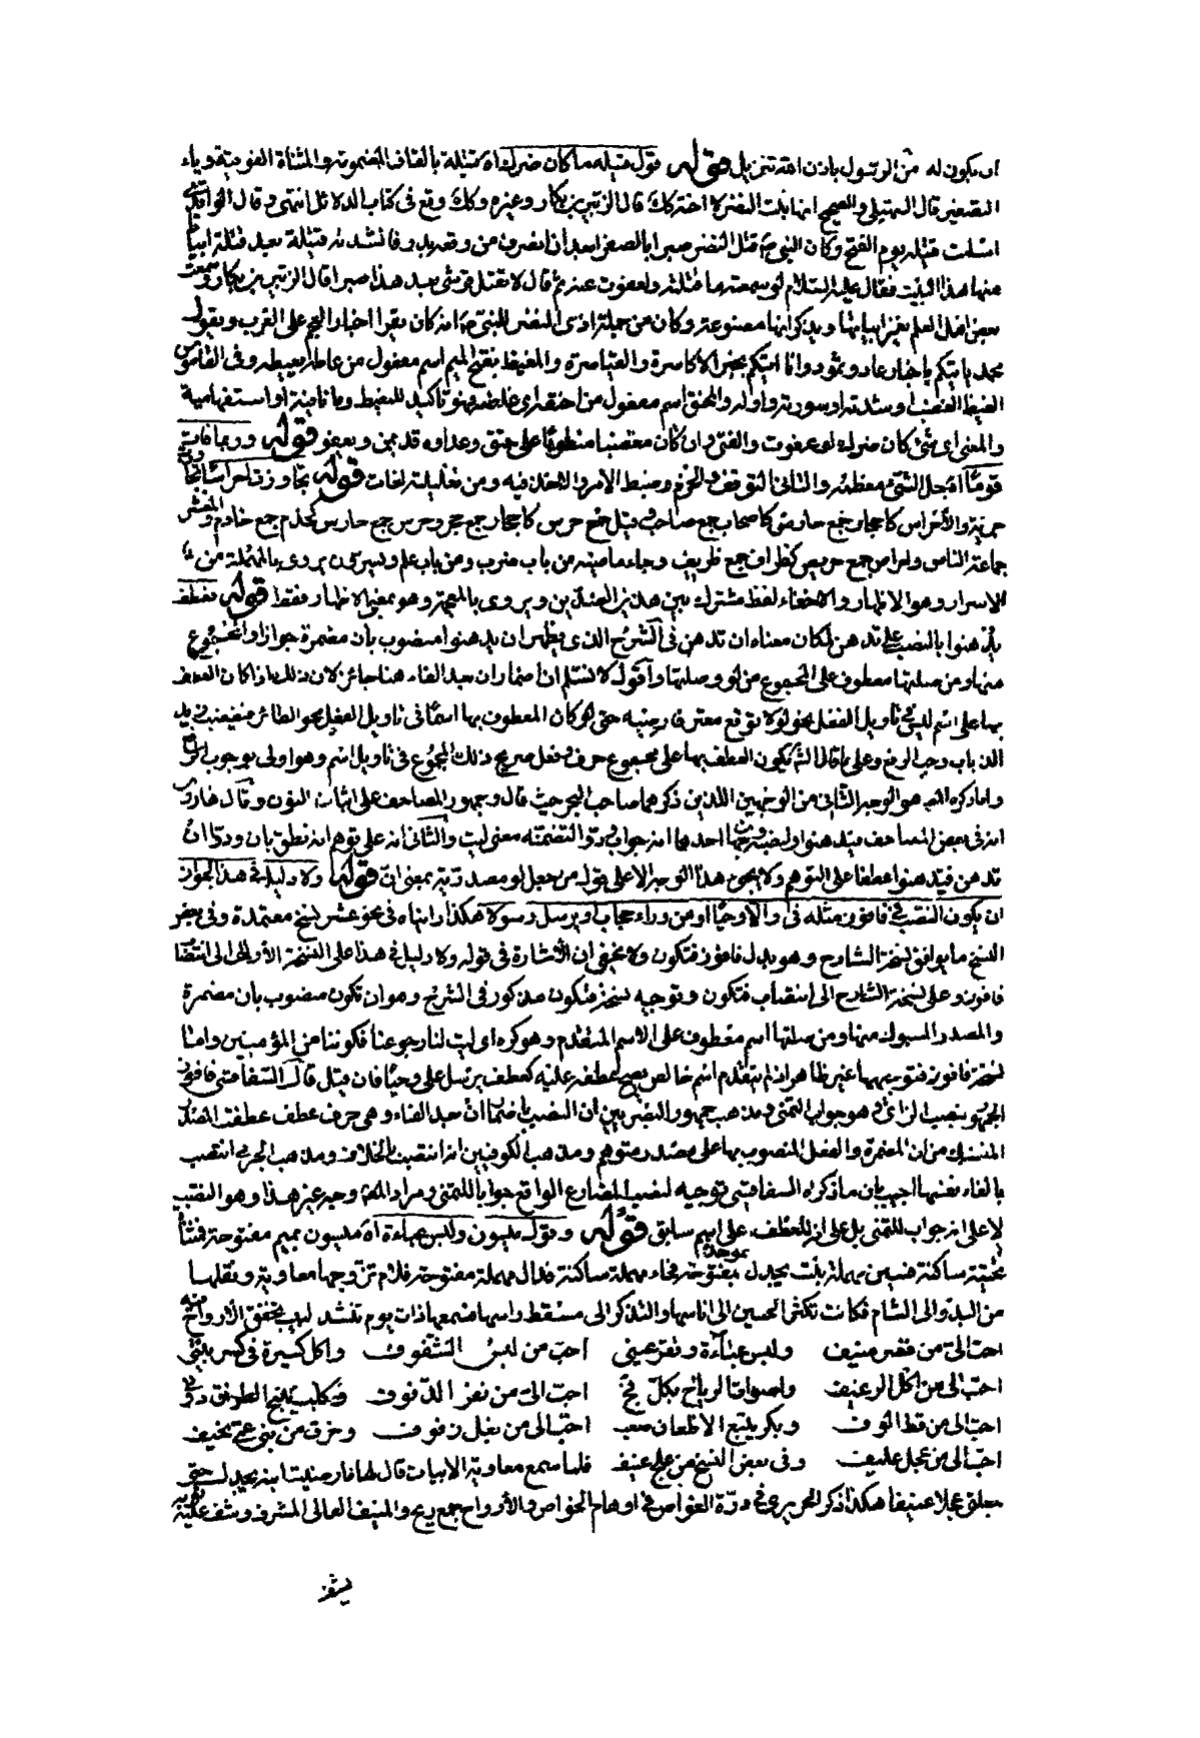 ان يكون له من الرسول باذن الله تنزيل قوله قول قتيلة ما كان ضرك اه قتيلة بالقاف المضمومة والمثناة الفوقية وياء
التصغير قال السهيلي والصحيح انها بنت النضر لا اخته كذلك قال الزبير بن بكار وغيره وكذلك وقع في كتاب الدلائل انتهى وقال الواقدي
اسلمت قتيلة يوم الفتح وكان النبي قتل النضر صبرا بالصفراء بعد ان انصرف من وقعة بدر فانشدته قتيلة بعد قتله ابياتا
منها هذا البيت فقال عليه السلام لو سمعته ما قتلته ولعفوت عنه ثم قال لا تقتل قرشي بعد هذا صبرا قال الزبير بن بكار وسمعت
بعض اهل العلم يغمز ابياتها ويذكر انها مصنوعة وكان من جملة اذى النضر للنبي انه كان يقرأ اخبار العجم على العرب ويقول
محمد يأتيكم باخبار عاد وثمود وانا آتيكم بخبر الاكاسرة والقياصرة والمغيظ بفتح الميم اسم مفعول من غاظه يغيظه وفي القاموس
الغيظ الغضب او شدته او سورته واوله والمحنق اسم مفعول من احنقه اي غاظه فهو تأكيد للمغيظ وما نافية او استفهامية
والمعنى اي شيء كان ضرك لو عفوت والفتى وان كان مغضبا منطويا على حنق وعداوة قد يمن ويعفو قوله وربما فات
قوما اه جل الشيء معظمه والتأني التوقف والحزم وضبط الامر والاخذ فيه ومن تعليلية لفات قوله تجاوزت احراسا
جمع حارس كاصحاب جمع صاحب وقيل جمع حرس كاحجار جمع حجر وحرس جمع حارس كخدم جمع خادم والمعشر
جماعة الناس وحراص جمع حريص كظراف جمع ظريف وجاء ماضيه من باب ضرب ومن باب علم ويسرون يروى بالمهملة من
الاسرار وهو الاظهار والاخفاء لفظ مشترك بين هذين الضدين ويروى بالمعجمة وهو بمعنى الاظهار فقط قوله فعطف
يدهنوا بالنصب على تدهن لما كان معناه ان تدهن في الشرح الذي يظهر ان يدهنوا منصوب بان مضمرة جوازا والمجموع
منها ومن صلتها معطوف على المجموع من لو وصلتها واقول لا نسلم ان اضمار ان بعد الفاء هنا جائز لان ذلك اذا كان العطف
بها على اسم ليس في تأويل الفعل نحو لولا توقع معتر فارضيه حتى لو كان المعطوف بها اسما في تأويل الفعل نحو الطائر فيغضب زيد
الذباب وجب الرفع وعلى ما قال يكون العطف بها على مجموع حرف وفعل صريح ذلك المجموع في تأويل اسم وهو اولى بوجوب الرفع
وما ذكره هو الوجه الثاني من الوجهين اللذين ذكرهما صاحب البحر حيث قال وجمهور المصاحف على اثبات النون وقال هارون
انه في بعض المصاحف فيدهنوا ولنصبه وجهان احدهما انه جواب ودوا لتضمنه معنى ليت والثاني انه على توهم انه نطق بان ودوا ان
تدهن فيدهنوا عطفا على التوهم ولا يجيء هذا الوجه الا على قول من جعل لو مصدرية بمعنى ان قوله ولا دليل في هذا الجواز
ان يكون النصب في فافوز مثله في الا وحيا او من وراء حجاب او يرسل رسولا هكذا رايناه في نحو عشر نسخ معتمدة وفي بعض
النسخ ما يوافق نسخة الشارح وهو بدل فافوز فتكون ولا يخفى ان الاشارة في قوله ولا دليل في هذا على النسخة الاولى الى انتصاب
فافوز وعلى نسخة الشارح الى انتصاب فتكون وتوجيه نسخة فتكون مذكور في الشرح وهو ان تكون منصوب بان مضمرة
والمصدر المسبوك منها ومن صلتها اسم معطوف على الاسم المتقدم وهو كرة اي ليت لنا رجوعنا فكوننا من المؤمنين واما
نسخة فافوز فتوجيهها غير ظاهر اذ لم يتقدم اسم خالص يصح عطفه عليه كعطف يرسل على وحيا فان قيل قال السفاقسي فافوز
الجمهور بنصب الزاي وهو جواب التمني ومذهب جمهور البصريين ان النصب باضمار ان بعد الفاء وهي حرف عطف عطفت المصدر
المنسبك من ان المضمرة والفعل المنصوب بها على مصدر متوهم ومذهب الكوفيين انه انتصب بالخلاف ومذهب الجرمي انتصب
بالفاء نفسها اجيب بان ما ذكره السفاقسي توجيه لنصب المضارع الواقع جوابا للتمني ومراد وجه غير هذا وهو النصب
لا على انه جواب للتمني بل على انه للعطف على اسم سابق قوله وقول ميسون ولبس عباءة اه ميسون بميم مفتوحة فمثناة
تحتية ساكنة فسين مهملة بنت بحدل بموحدة مفتوحة فحاء مهملة ساكنة فدال مهملة مفتوحة فلام تزوجها معاوية ونقلها
من البدو الى الشام فكانت تكثر الحنين الى اناسها والتذكر الى مسقط راسها فسمعها ذات يوم تنشد لبيت تخفق الارواح فيه
احب الي من قصر منيف ولبس عباءة وتقر عيني احب من لبس الشفوف واكل كسيرة في كسر بيتي
احب الي من اكل الرغيف واصوات الرياح بكل فج احب الي من نقر الدفوف وكلب ينبح الطراق دوني
احب الي من قط الوف وبكر يتبع الاظعان صعب احب الي من بغل زفوف وخرق من بني عمي نحيف
احب الي من عجل عليف وفي بعض النسخ من علج عنيف فلما سمع معاوية الابيات قال لها ما رضيت ابنة بحدل حتى
جعلتني عجلا عنيفا هكذا ذكر الحريري في درة الغواص في اوهام الخواص والارواح جمع ريح والمنيف العالي المشرف وشف عليه ثوبه